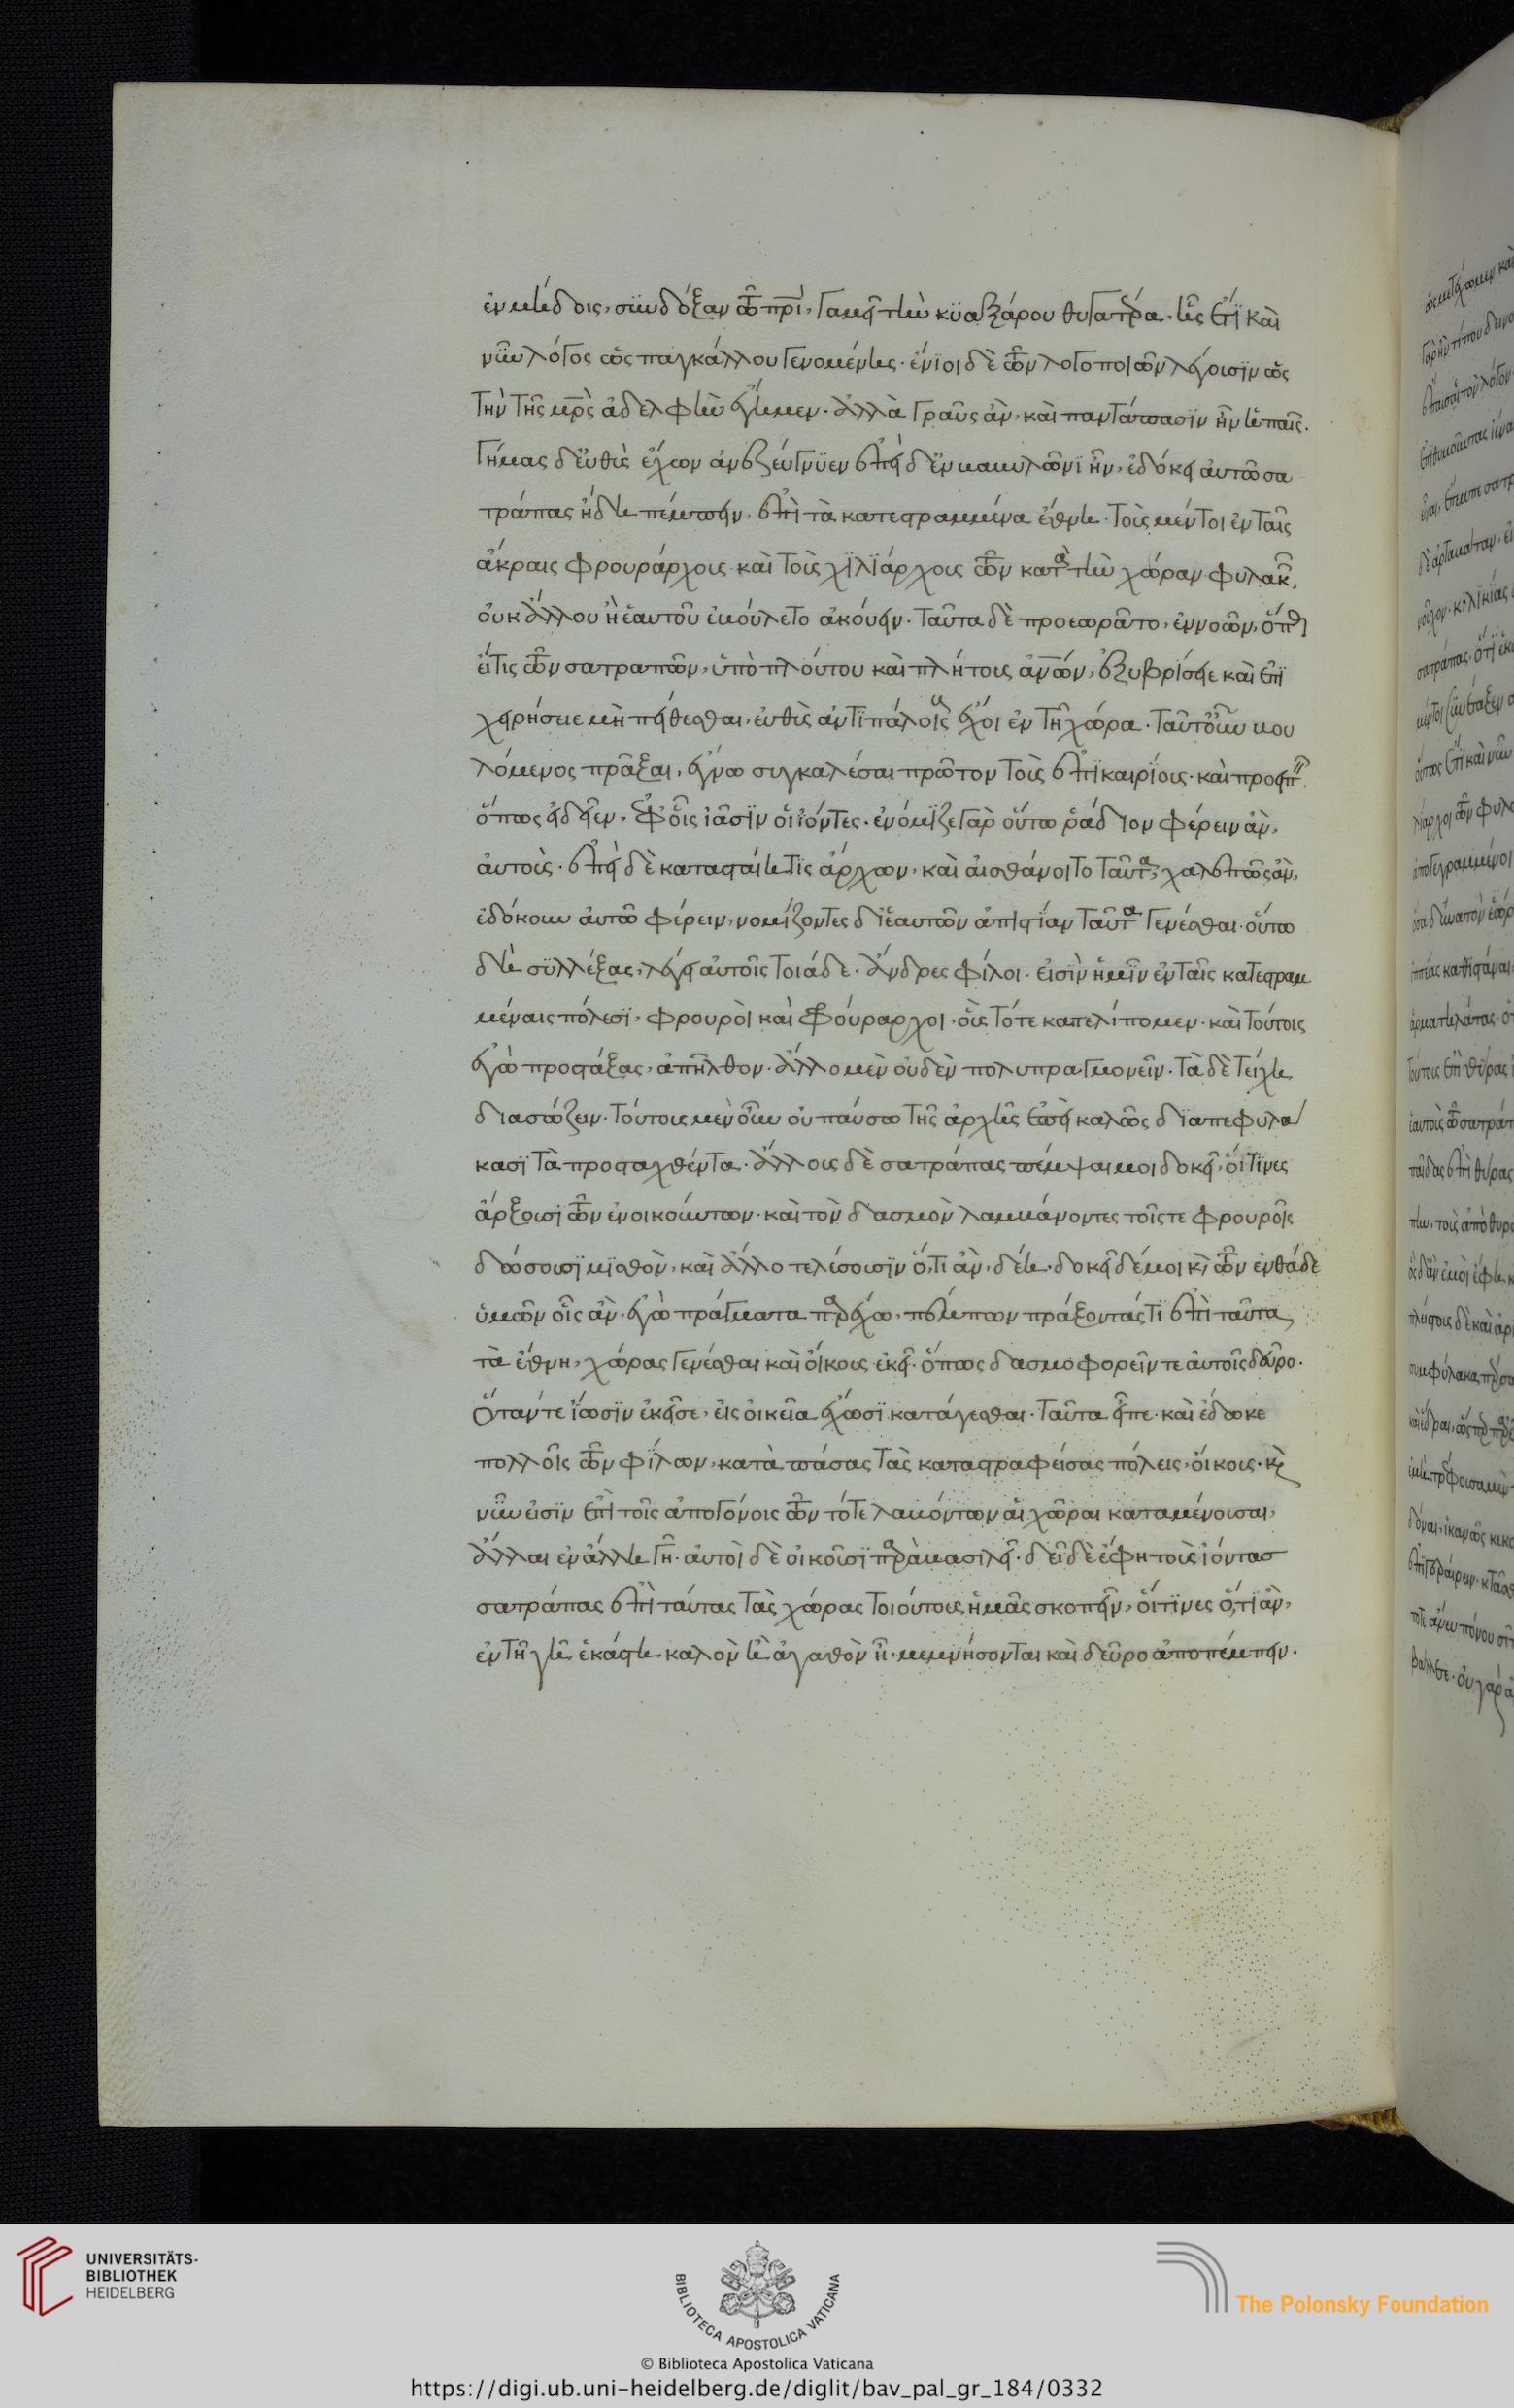 ἐν μήδοις, σὺν δόξαν τῶ πρὶ, γαμεῖ τὴν κυαξάρου θυγατέρα. ἧς ἔτι καὶ
νῦν λόγος ὡς παγκάλλου γενομένης. ἔνιοι δὲ τῶν λογοποιῶν λέγουσιν ὡς
τὴν τῆς μρὸς ἀδελφὴν ἔγημεν. ἀλλὰ γραῦς ἂν, καὶ παντάπασιν ἦν ἡ παῖς.
γήμας δ' εὐθὺς ἔχων ἀνεζεύγνυεν ἐπεὶ δ' ἐν βαβυλῶνι ἦν, ἐδόκει αὐτῶ σα
τράπας ἤδη πέμπειν, ἐπὶ τὰ κατεστραμμένα ἔθνη. τοὺς μέντοι ἐν ταῖς
ἄκραις φρουράρχους καὶ τοὺς χιλιάρχους τῶν κατὰ τὴν χώραν φυλακῶν,
οὐκ ἄλλου ἢ ἑαυτοῦ ἐβούλετο ἀκούειν. ταῦτα δὲ προεωρᾶτο, ἐννοῶν, ὅπως
εἴ τις τῶν σατραπῶν, ὑπὸ πλούτου καὶ πλήθους ἀνῶν, ἐξυβρίσειε καὶ ἐπι
χειρήσειε μὴ πείθεσθαι, εὐθὺς ἀντιπάλους ἔχοι ἐν τῆ χώρα. ταῦτ' οὖν βου
λόμενος πρᾶξαι, ἔγνω συγκαλέσαι πρῶτον τοὺς ἐπικαιρίους. καὶ προειπεῖν
ὅπως εἰδεῖεν, ἐφ' οἷς ἴασιν οἱ ἰόντες. ἐνόμιζε γὰρ οὕτω ῥάδιον φέρειν ἂν,
αὐτοὺς. ἐπεὶ δὲ κατασταίη τις ἄρχων, καὶ αἰσθάνοιτο ταῦτα, χαλεπῶς ἂν,
ἐδόκουν αὐτῶ φέρειν, νομίζοντες δι' ἑαυτῶν ἀπιστίαν ταῦτα γενέσθαι. οὕτω
δὴ συλλέξας, λέγει αὐτοῖς τοιάδε. ἄνδρες φίλοι. εἰσὶν ἡμῖν ἐν ταῖς κατεστραμ
μέναις πόλεσι, φρουροὶ καὶ φρούραρχοι, οὓς τότε κατελίπομεν. καὶ τούτοις
ἐγὼ προστάξας, ἀπῆλθον. ἄλλο μὲν οὐδὲν πολυπραγμονεῖν. τὰ δὲ τείχη
διασώζειν. τούτους μὲν οὖν οὐ παύσω τῆς ἀρχῆς ἐπεὶ καλῶς διαπεφυλά
κασι τὰ προσταχθέντα. ἄλλους δὲ σατράπας πέμψαι μοι δοκεῖ, οἵτινες
ἄρξουσι τῶν ἐνοικούντων. καὶ τὸν δασμὸν λαμβάνοντες τοῖς τε φρουροῖς
δώσουσι μισθὸν, καὶ ἄλλο τελέσουσιν ὅ,τι ἂν, δέη. δοκεῖ δέ μοι κὶ τῶν ἐνθάδε
ὑμῶν οἷς ἂν. ἐγὼ πράγματα παρέχω, πέμπων πράξοντάς τι ἐπὶ ταῦτα
τὰ ἔθνη, χώρας γενέσθαι καὶ οἴκους ἐκεῖ. ὅπως δασμοφορεῖν τε αὐτοῖς δεῦρο.
ὅταν τε ἴωσιν ἐκεῖσε, εἰς οἰκεῖα ἔχωσι κατάγεσθαι. ταῦτα εἶπε. καὶ ἔδωκε
πολλοῖς τῶν φίλων, κατὰ πάσας τὰς καταστραφείσας πόλεις, οἴκους. κὶ
νῦν εἰσὶν ἐπὶ τοῖς ἀπογόνοις τῶν τότε λαβόντων αἱ χῶραι καταμένουσαι,
ἄλλαι ἐν ἄλλη γῆ. αὐτοὶ δὲ οἰκοῦσι παρὰ βασιλεῖ. δεῖ δὲ ἔφη τοὺς ἰόντας
σατράπας ἐπὶ ταύτας τὰς χώρας τοιούτους ἡμᾶς σκοπεῖν, οἵτινες ὅ,τι ἂν,
ἐν τῆ γῆ ἑκάστη καλὸν ἢ ἀγαθὸν ἦ, μεμνήσονται καὶ δεῦρο ἀποπέμπειν.
UNIVERSITÄTS-
BIBLIOTHEK
HEIDELBERG
BIBLIOTECA APOSTOLICA VATICANA
The Polonsky Foundation
© Biblioteca Apostolica Vaticana
https://digi.ub.uni-heidelberg.de/diglit/bav_pal_gr_184/0332